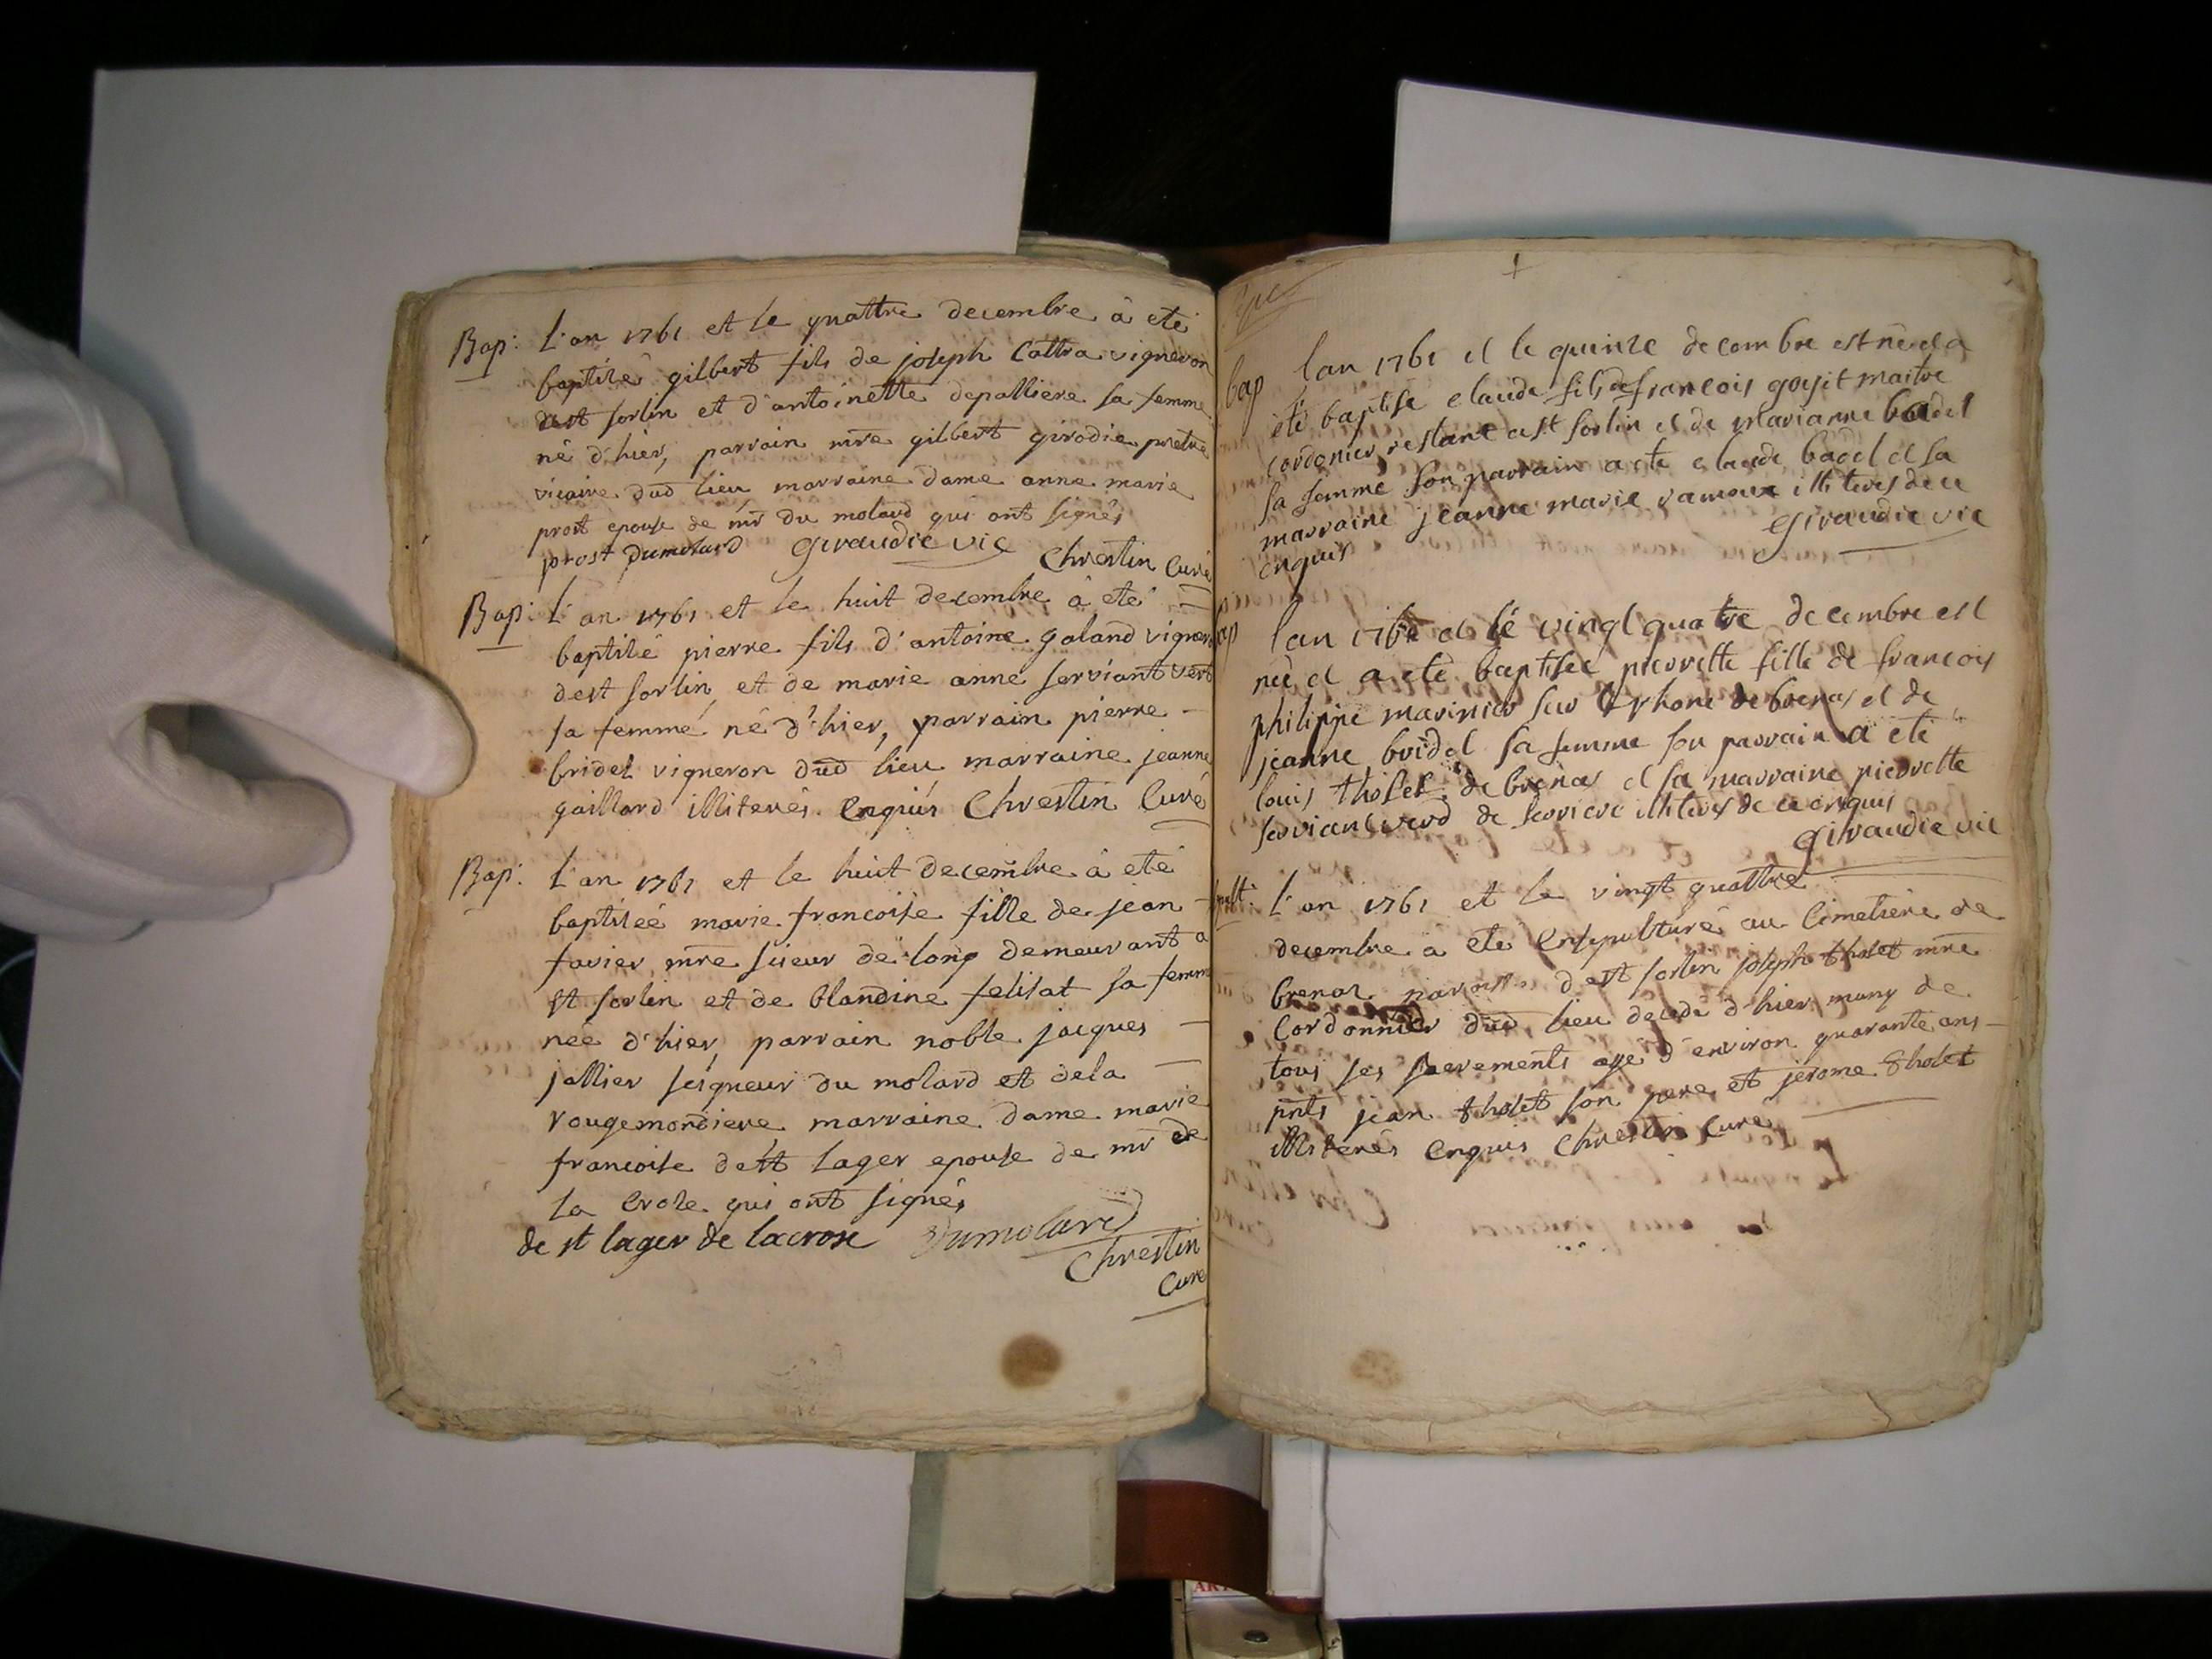 Bap: L'an 1761 et le quattre decembre à eté
baptisé gilbert fils de joseph Cattra vigneron
dest sorlin et d'antoinette depalliere sa femme
né d'hier, parrain mre gilbert girodie pretre
vicaire dud lieu marraine dame anne marie
prost epouse de mr du molard qui ont signés
prost Dumolard Giraudie vic
Chrestin Curé
Bap: L'an 1761 et le huit decembre à eté
baptisé pierre fils d'antoine galand vigner
dest sorlin, et de marie anne serviant vert
sa femme né d'hier, parrain pierre
bridel vigneron dud lieu marraine jeanne
gaillard illiterés enquis Chrestin Curé
Bap: L'an 1761 et le huit decembre à eté
baptisée marie francoise fille de jean
favier mre sieur de long demeurant a
st sorlin et de blandine felisat sa femm
née d'hier, parrain noble jacques
jallier seigneur du molard et dela
rougemondiere marraine dame marie
francoise de st lager epouse de mr de
la croze qui ont signés
de st lager de lacrose Dumolard
Chrestin
Curé
bap lan 1761 et le quinze decembre est né et a
eté baptise claude fils de francois goyit maitre
cordonier restant a st sorlin et de marianne badel
sa femme son parrain a ete claude badel et sa
marraine jeanne marie ramoux illiteres de ce
enquis Giraudie vic
lan 1761 et le vingt quatre decembre est
neé et a eté baptisee pierrette fille de francois
philippe marinier sur le rhone de brenas et de
jeanne bridel sa femme son parrain a eté
louis tholet de brenas et sa marraine pierrette
serviant verd de serriere illiteres de ce enquis
Giraudie vic
pult: L'an 1761 et le vingt quattre
decembre a eté ensepulturé au Cimetiere de
brenas paroisse d'est sorlin joseph tholet mre
Cordonnier dud lieu decedé d'hier muny de
tous ses sacrements agé d'environ quarante ans
pnts jean tholet son pere et jerome tholet
illiterés enquis Chrestin Curé